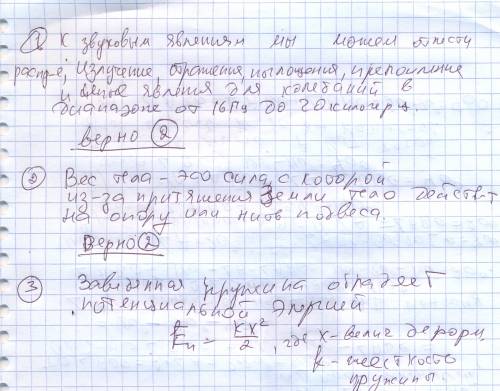 ① К звуковым явлениям мы можем отнести
распр-е, излучение, отражения, поглощения, преломление
и другие явления для колебаний в
диапазоне от 16 Гц до 20 килогерц.
верно ②
② Вес тела - это сила, с которой
из-за притяжения Земли тело действ-т
на опору или нить подвеса.
Верно ②
③ Заведенная пружина обладает
потенциальной энергией
Eп = kx²/2, где x - велич. деформ,
k - жесткость
пружины.